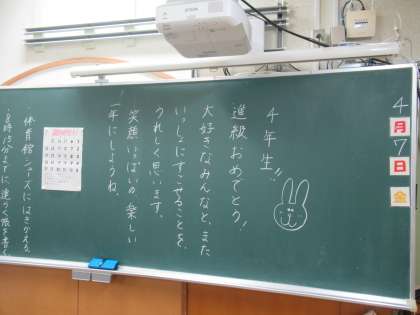 4月7日 金
4年生!!
進級おめでとう!
大好きなみんなと、また
いっしょにすごせることを、
うれしく思います。
笑顔いっぱいの 楽しい
一年にしようね。
・体育館シューズにはきかえる。
・8時15分までに、連らく帳を書く
EPSON